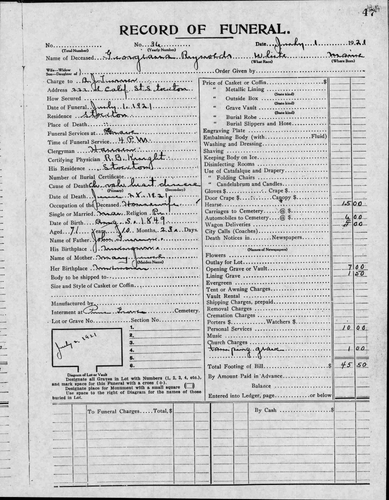 47
RECORD OF FUNERAL.
No. No. 36 Date July 1 1921
(Total Number) (Yearly Number)
Name of Deceased Georgiana Reynolds White Maine
(What Race) (Where Born)
Order Given by
Charge to A.J. Turner
Address 222 N Calif. St. Stockton
How Secured
Date of Funeral July 1. 1921
Residence Stockton
Place of Death
Funeral Services at Grave
Time of Funeral Service 4 P.M.
Clergyman Hansen
Certifying Physician R.B. Knight
His Residence Stockton
Number of Burial Certificate
Cause of Death
Date of Death June 28. 1921
Occupation of the Deceased Housewife
Single or Married Religion
Date of Birth 1849
Aged 71 yrs 10 mos. 23 Days.
Name of Father John
His Birthplace
Name of Mother Mary
(Maiden Name)
Her Birthplace Unknown
Body to be shipped to
Size and Style of Casket or Coffin
Manufactured by
Interment at Cemetery.
Lot or Grave No. Section No.
1.
2.
3.
4.
5.
6.
July 2 1921
Diagram of Lot or Vault
Designate all Graves in Lot with Numbers (1, 2, 3, 4, etc.), and mark space for this Funeral with a cross (+).
Designate place for Monument with a small square
Use space to the right of Diagram for the names of those buried in Lot.
Price of Casket or Coffin
" Metallic Lining
(State kind)
" Outside Box
(State kind)
" Grave Vault
(State kind)
" Burial Robe
(State kind)
" Burial Slippers and Hose
Engraving Plate
Embalming Body (with Fluid)
Washing and Dressing
Shaving
Keeping Body on Ice
Disinfecting Rooms
Use of Catafalque and Drapery
" Folding Chairs
" Candelabrum and Candles
Gloves $ Crape $
Door Crape
Hearse 15 00
Carriages to Cemetery @ $
Automobiles to Cemetery @ $ 6 00
Wagon Deliveries
City Calls (Coaches)
Death Notices in Newspapers
Flowers
Outlay for Lot
Opening Grave or Vault 7 00
Lining Grave 1 50
Evergreen
Tent or Awning Charges
Vault Rental
Shipping Charges, prepaid
Removal Charges
Cremation Charges
Porters $ Watchers $
Personal Services 10 00
Music
Church Charges
Tamping grave 1 00
Total Footing of Bill $ 45 50
By Amount Paid in Advance
Balance
Entered into Ledger, page or below.
To Funeral Charges, Total $
By Cash $